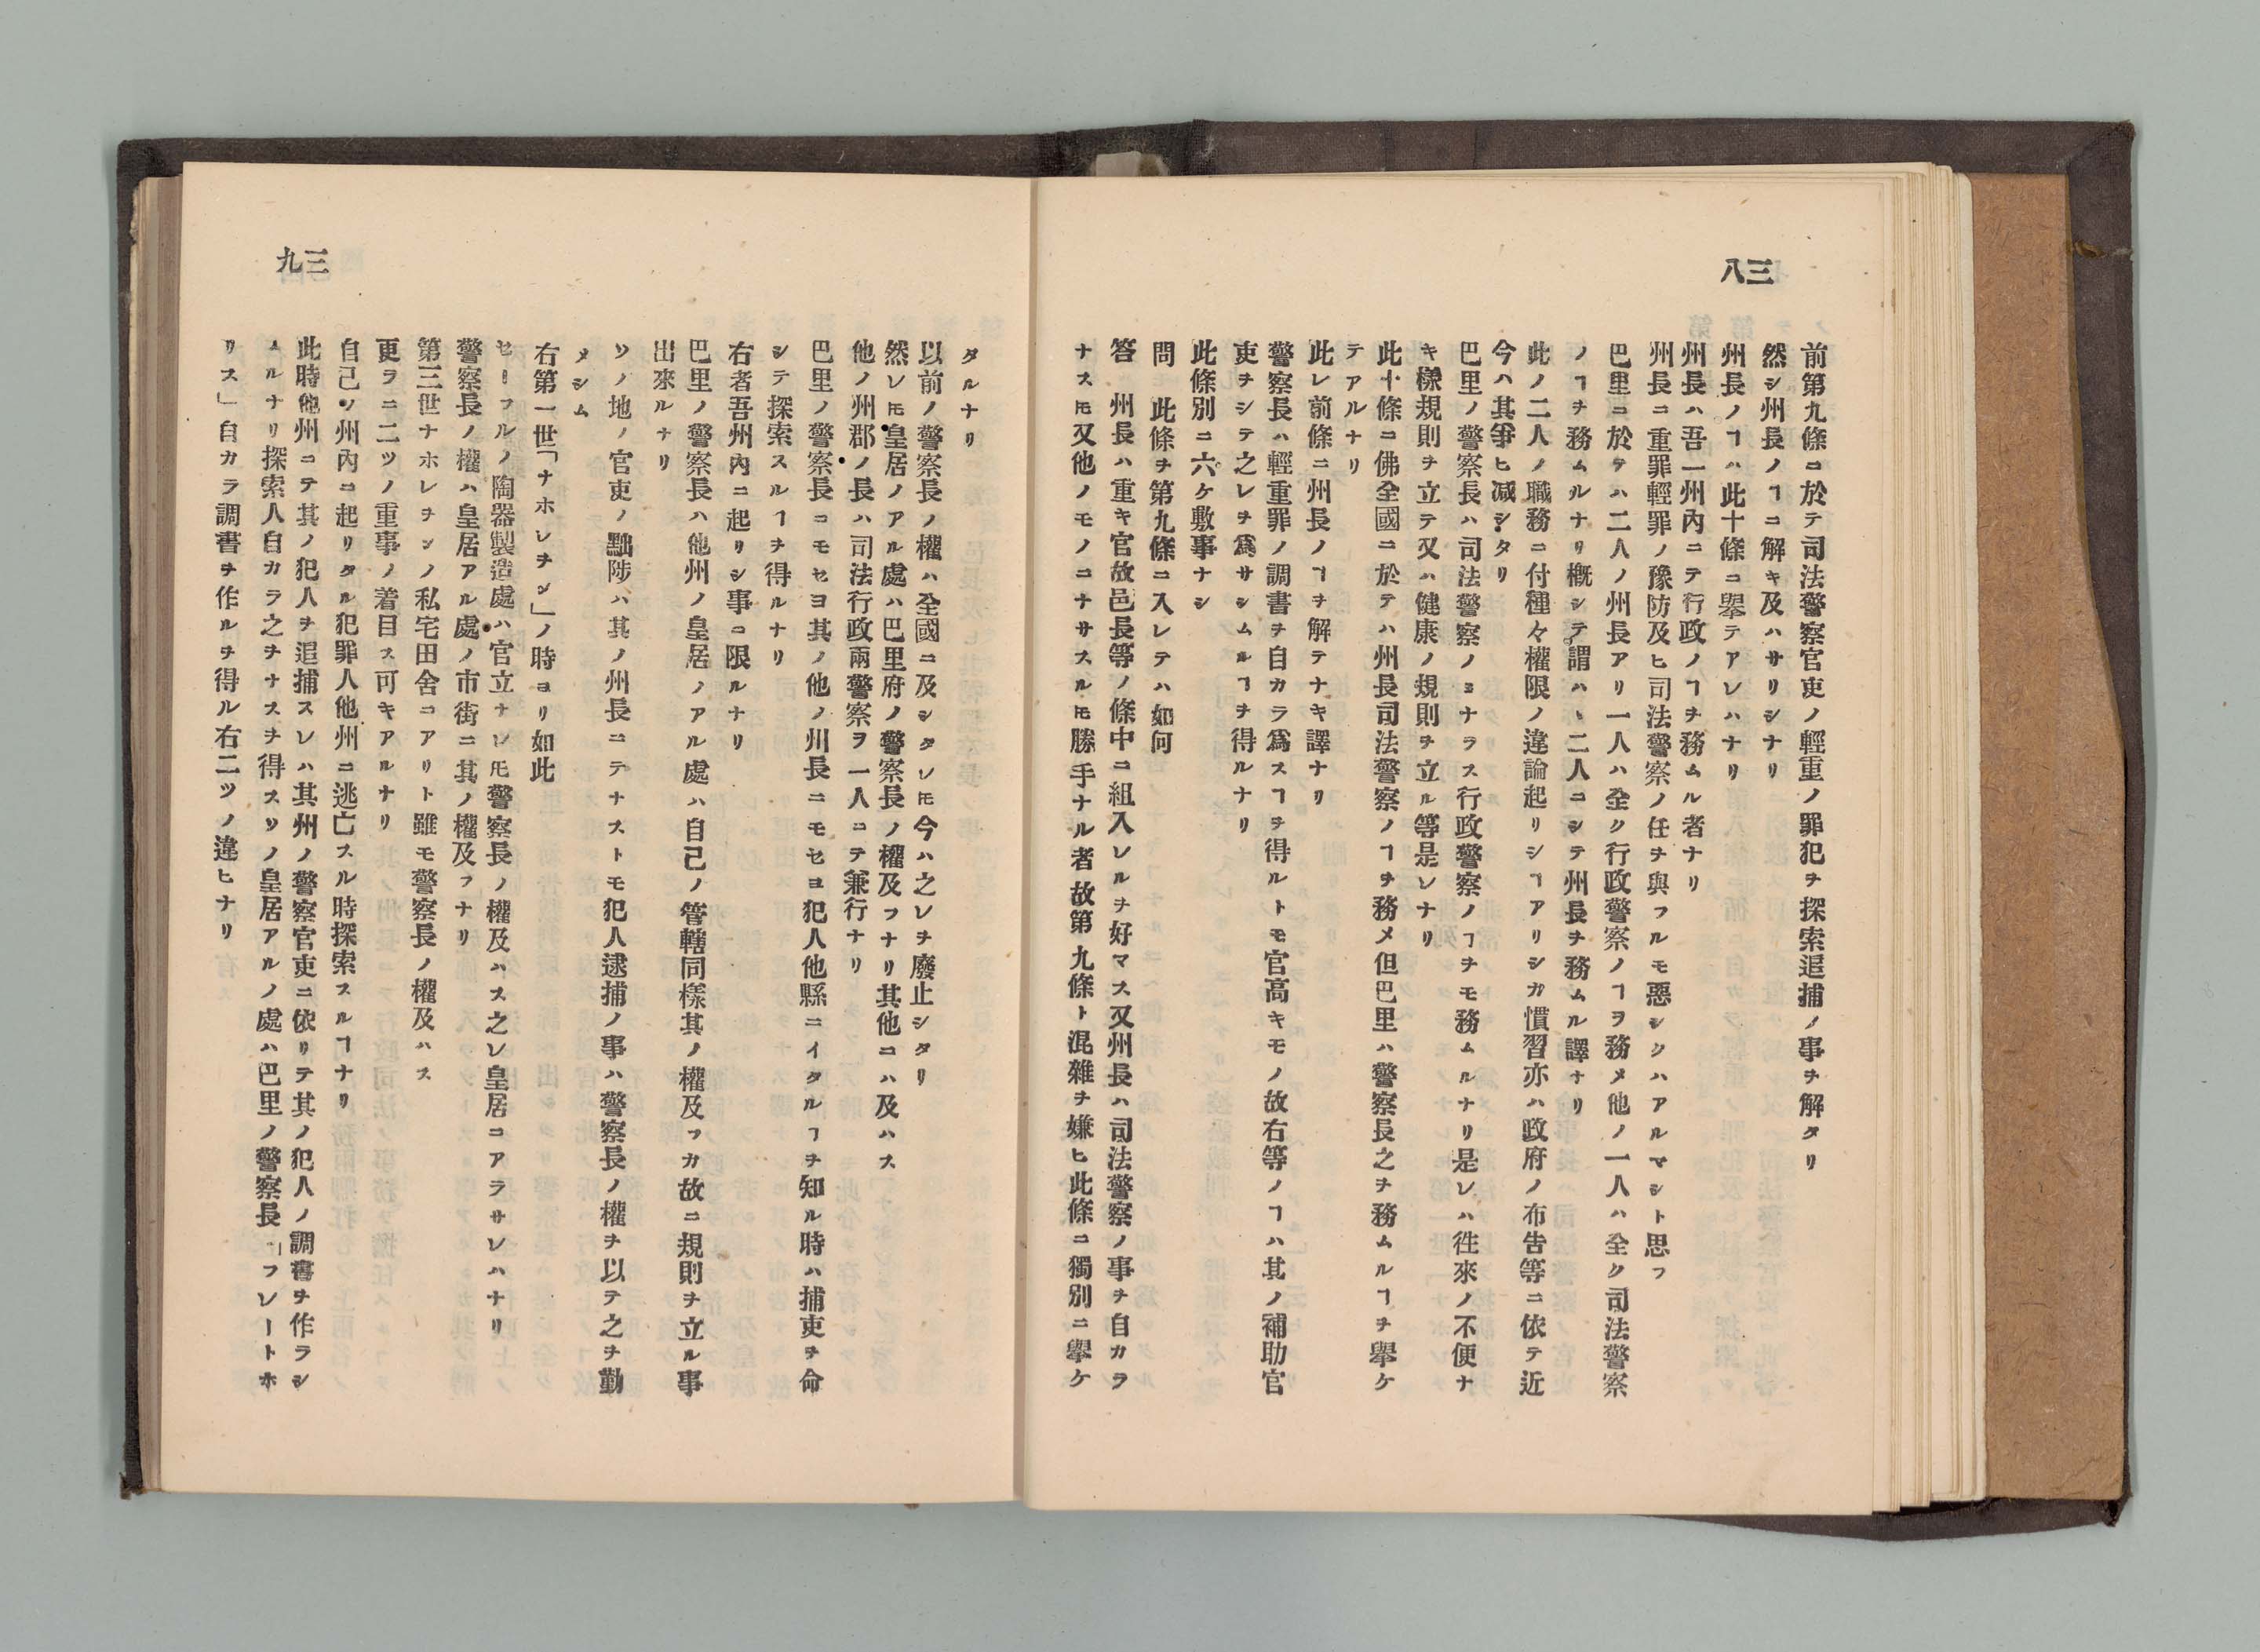 三八
前第九條ニ於テ司法警察官吏ノ輕重ノ罪犯ヲ探索逅捕ノ事ヲ解タリ
然シ州長ノヿニ解キ及ハサリシナリ
州長ノヿハ此十條ニ擧テアレハナリ
州長ハ吾一州內ニテ行政ノヿヲ務ムル者ナリ
州長ニ重罪輕罪ノ豫防及ヒ司法警察ノ任ヲ與フルモ惡シクハアルマシト思フ
巴里ニ於テハ二人ノ州長アリ一人ハ全ク行政警察ノヿヲ務メ他ノ一人ハ全ク司法警察
ノヿヲ務ムルナリ槪シテ謂ハヽ二人ニシテ州長ヲ務ムル譯ナリ
此ノ二人ノ職務ニ付種々權限ノ違論起リシヿアリシカ慣習亦ハ政府ノ布告等ニ依テ近
今ハ其爭ヒ减シタリ
巴里ノ警察長ハ司法警察ノミナラス行政警察ノヿヲモ務ムルナリ是レハ徃來ノ不便ナ
キ樣規則ヲ立テ又ハ健康ノ規則ヲ立ル等是レナリ
此十條ニ佛全國ニ於テハ州長司法警察ノヿヲ務メ但巴里ハ警察長之ヲ務ムルヿヲ擧ケ
テアルナリ
此レ前條ニ州長ノヿヲ解テナキ譯ナリ
警察長ハ輕重罪ノ調書ヲ自カラ爲スヿヲ得ルトモ官高キモノ故右等ノヿハ其ノ補助官
吏ヲシテ之レヲ爲サシムルヿヲ得ルナリ
此條別ニ六ケ敷事ナシ
問　此條ヲ第九條ニ入レテハ如何
答　州長ハ重キ官故邑長等ノ條中ニ組入レルヲ好マス又州長ハ司法警察ノ事ヲ自カラ
ナスㇳモ又他ノモノニナサスルㇳモ勝手ナル者故第九條ト混雜ヲ嫌ヒ此條ニ獨別ニ擧ケ
三九
タルナリ
以前ノ警察長ノ權ハ全國ニ及シタレㇳモ今ハ之レヲ廢止シタリ
然レㇳモ皇居ノアル處ハ巴里府ノ警察長ノ權及フナリ其他ニハ及ハス
他ノ州郡ノ長ハ司法行政兩警察ヲ一人ニテ兼行ナリ
巴里ノ警察長ニモセヨ其ノ他ノ州長ニモセヨ犯人他縣ニイタルヿヲ知ル時ハ捕吏ヲ命
シテ探索スルヿヲ得ルナリ
右者吾州內ニ起リシ事ニ限ルナリ
巴里ノ警察長ハ他州ノ皇居ノアル處ハ自己ノ管轄同樣其ノ權及フカ故ニ規則ヲ立ル事
出來ルナリ
ソノ地ノ官吏ノ黜陟ハ其ノ州長ニテナストモ犯人逮捕ノ事ハ警察長ノ權ヲ以テ之ヲ勤
メシム
右第一世「ナホレヲン」ノ時ヨリ如此
セーフルノ陶器製造處ハ官立ナレㇳモ警察長ノ權及ハス之レ皇居ニアラサレハナリ
警察長ノ權ハ皇居アル處ノ市街ニ其ノ權及フナリ
第三世ナホレヲンノ私宅田舍ニアリト雖モ警察長ノ權及ハス
更ヲニ二ツノ重事ノ着目ス可キアルナリ
自己ノ州內ニ起リタル犯罪人他州ニ逃亡スル時探索スルヿナリ
此時他州ニテ其ノ犯人ヲ逅捕スレハ其州ノ警察官吏ニ依リテ其ノ犯人ノ調書ヲ作ラシ
ムルナリ探索人自カラ之ヲナスヲ得スソノ皇居アルノ處ハ巴里ノ警察長「フレートホ
リス」自カラ調書ヲ作ルヲ得ル右二ツノ違ヒナリ